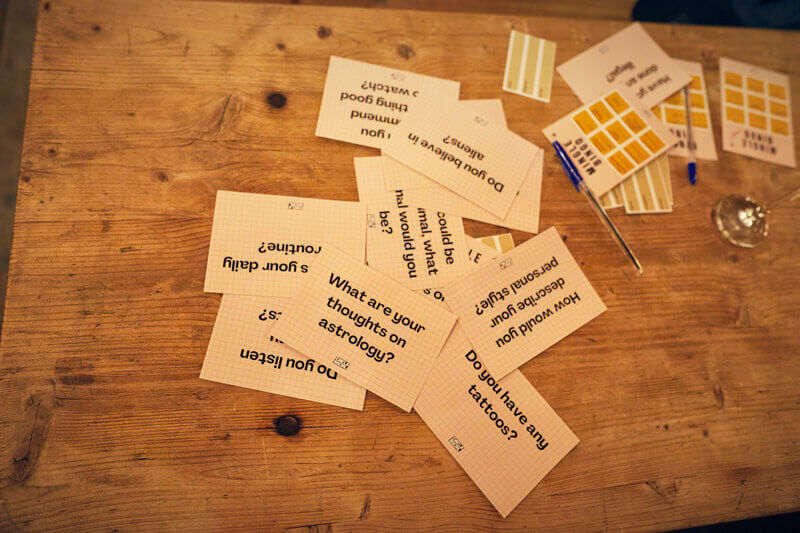 What are your
thoughts on
astrology?
Do you have any
tattoos?
How would you
describe your
personal style?
Do you believe in
aliens?
could be
mal, what
nal would you
be?
s your daily
routine?
Do you listen
s?
n you
mmend
thing good
o watch?
Have yo
done an
illegal?
MINGLE
BINGO
MINGLE
BINGO